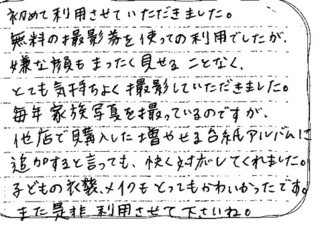 初めて利用させていただきました。
無料の撮影券を使っての利用でしたが、
嫌な顔もまったく見せることなく、
とても気持ちよく撮影していただきました。
毎年家族写真を撮っているのですが、
他店で購入した増やせる台紙アルバムに
追加すると言っても、快く対応してくれました。
子どもの衣装、メイクもとってもかわいかったです。
また是非利用させて下さいね。